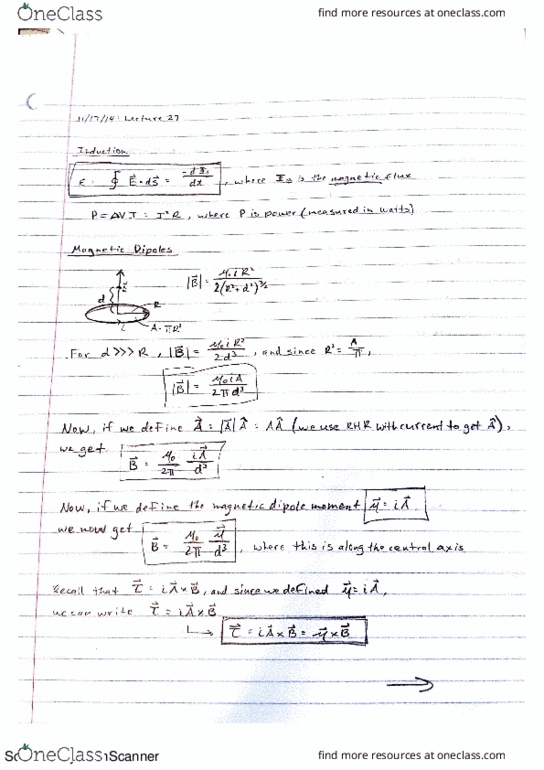 OneClass find more resources at oneclass.com
11/17/14: Lecture 27
Induction
ε = ∮ E⃗·ds⃗ = -dΦ_B/dt , where Φ_B is the magnetic flux
P = ΔVI = I²R , where P is power (measured in watts)
Magnetic Dipoles
d R |B⃗| = μ₀iR²/2(R²+d²)^3/2
i A = πR²
For d>>>R , |B⃗| = μ₀iR²/2d³ , and since R² = A/π ,
|B⃗| = μ₀iA/2πd³
Now, if we define A⃗ = |A⃗|Â = AÂ (we use RHR with current to get Â),
we get B⃗ = μ₀/2π iA⃗/d³
Now, if we define the magnetic dipole moment μ⃗ = iA⃗
we now get B⃗ = μ₀/2π μ⃗/d³ , where this is along the central axis
Recall that τ⃗ = iA⃗×B⃗, and since we defined μ⃗ = iA⃗,
we can write τ⃗ = iA⃗×B⃗
↳ τ⃗ = iA⃗×B⃗ = μ⃗×B⃗
OneClass Scanner find more resources at oneclass.com